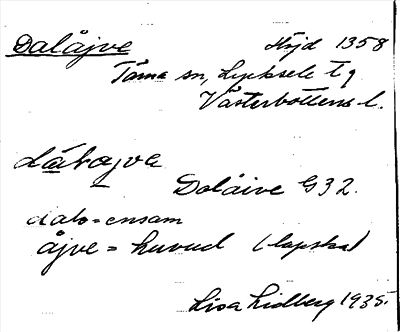 Dalåjve Höjd 1358
Tärna sn, Lycksele t g
Västerbottens l.
Dalåive G32.
dalo = ensam
åjve = huvud (lapska)
Lisa Lidberg 1935.